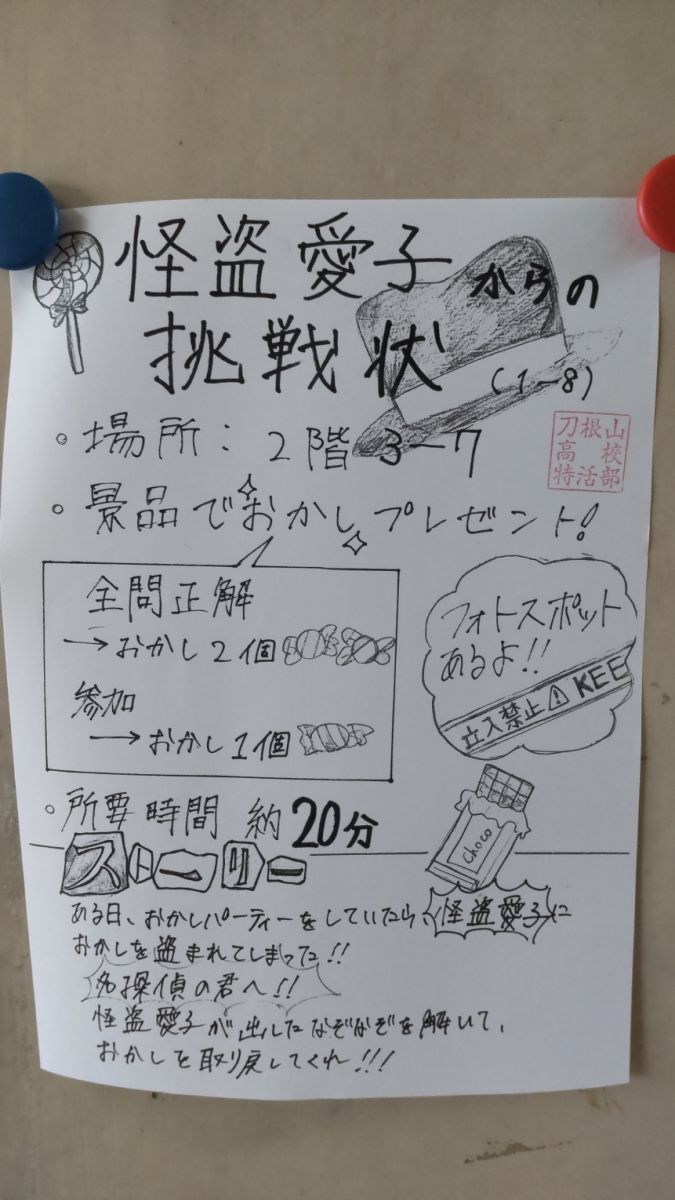 怪盗愛子からの
挑戦状 (1-8)
・場所：2階 3-7
刀根山
高校
特活部
・景品でおかしプレゼント!
全問正解
→おかし2個
参加
→おかし1個
フォトスポット
あるよ!!
立入禁止 ⚠ KEE
・所要時間 約20分
choco
ストーリー
ある日、おかしパーティーをしていたら怪盗愛子に
おかしを盗まれてしまった!!
名探偵の君へ!!
怪盗愛子が出したなぞなぞを解いて、
おかしを取り戻してくれ!!!